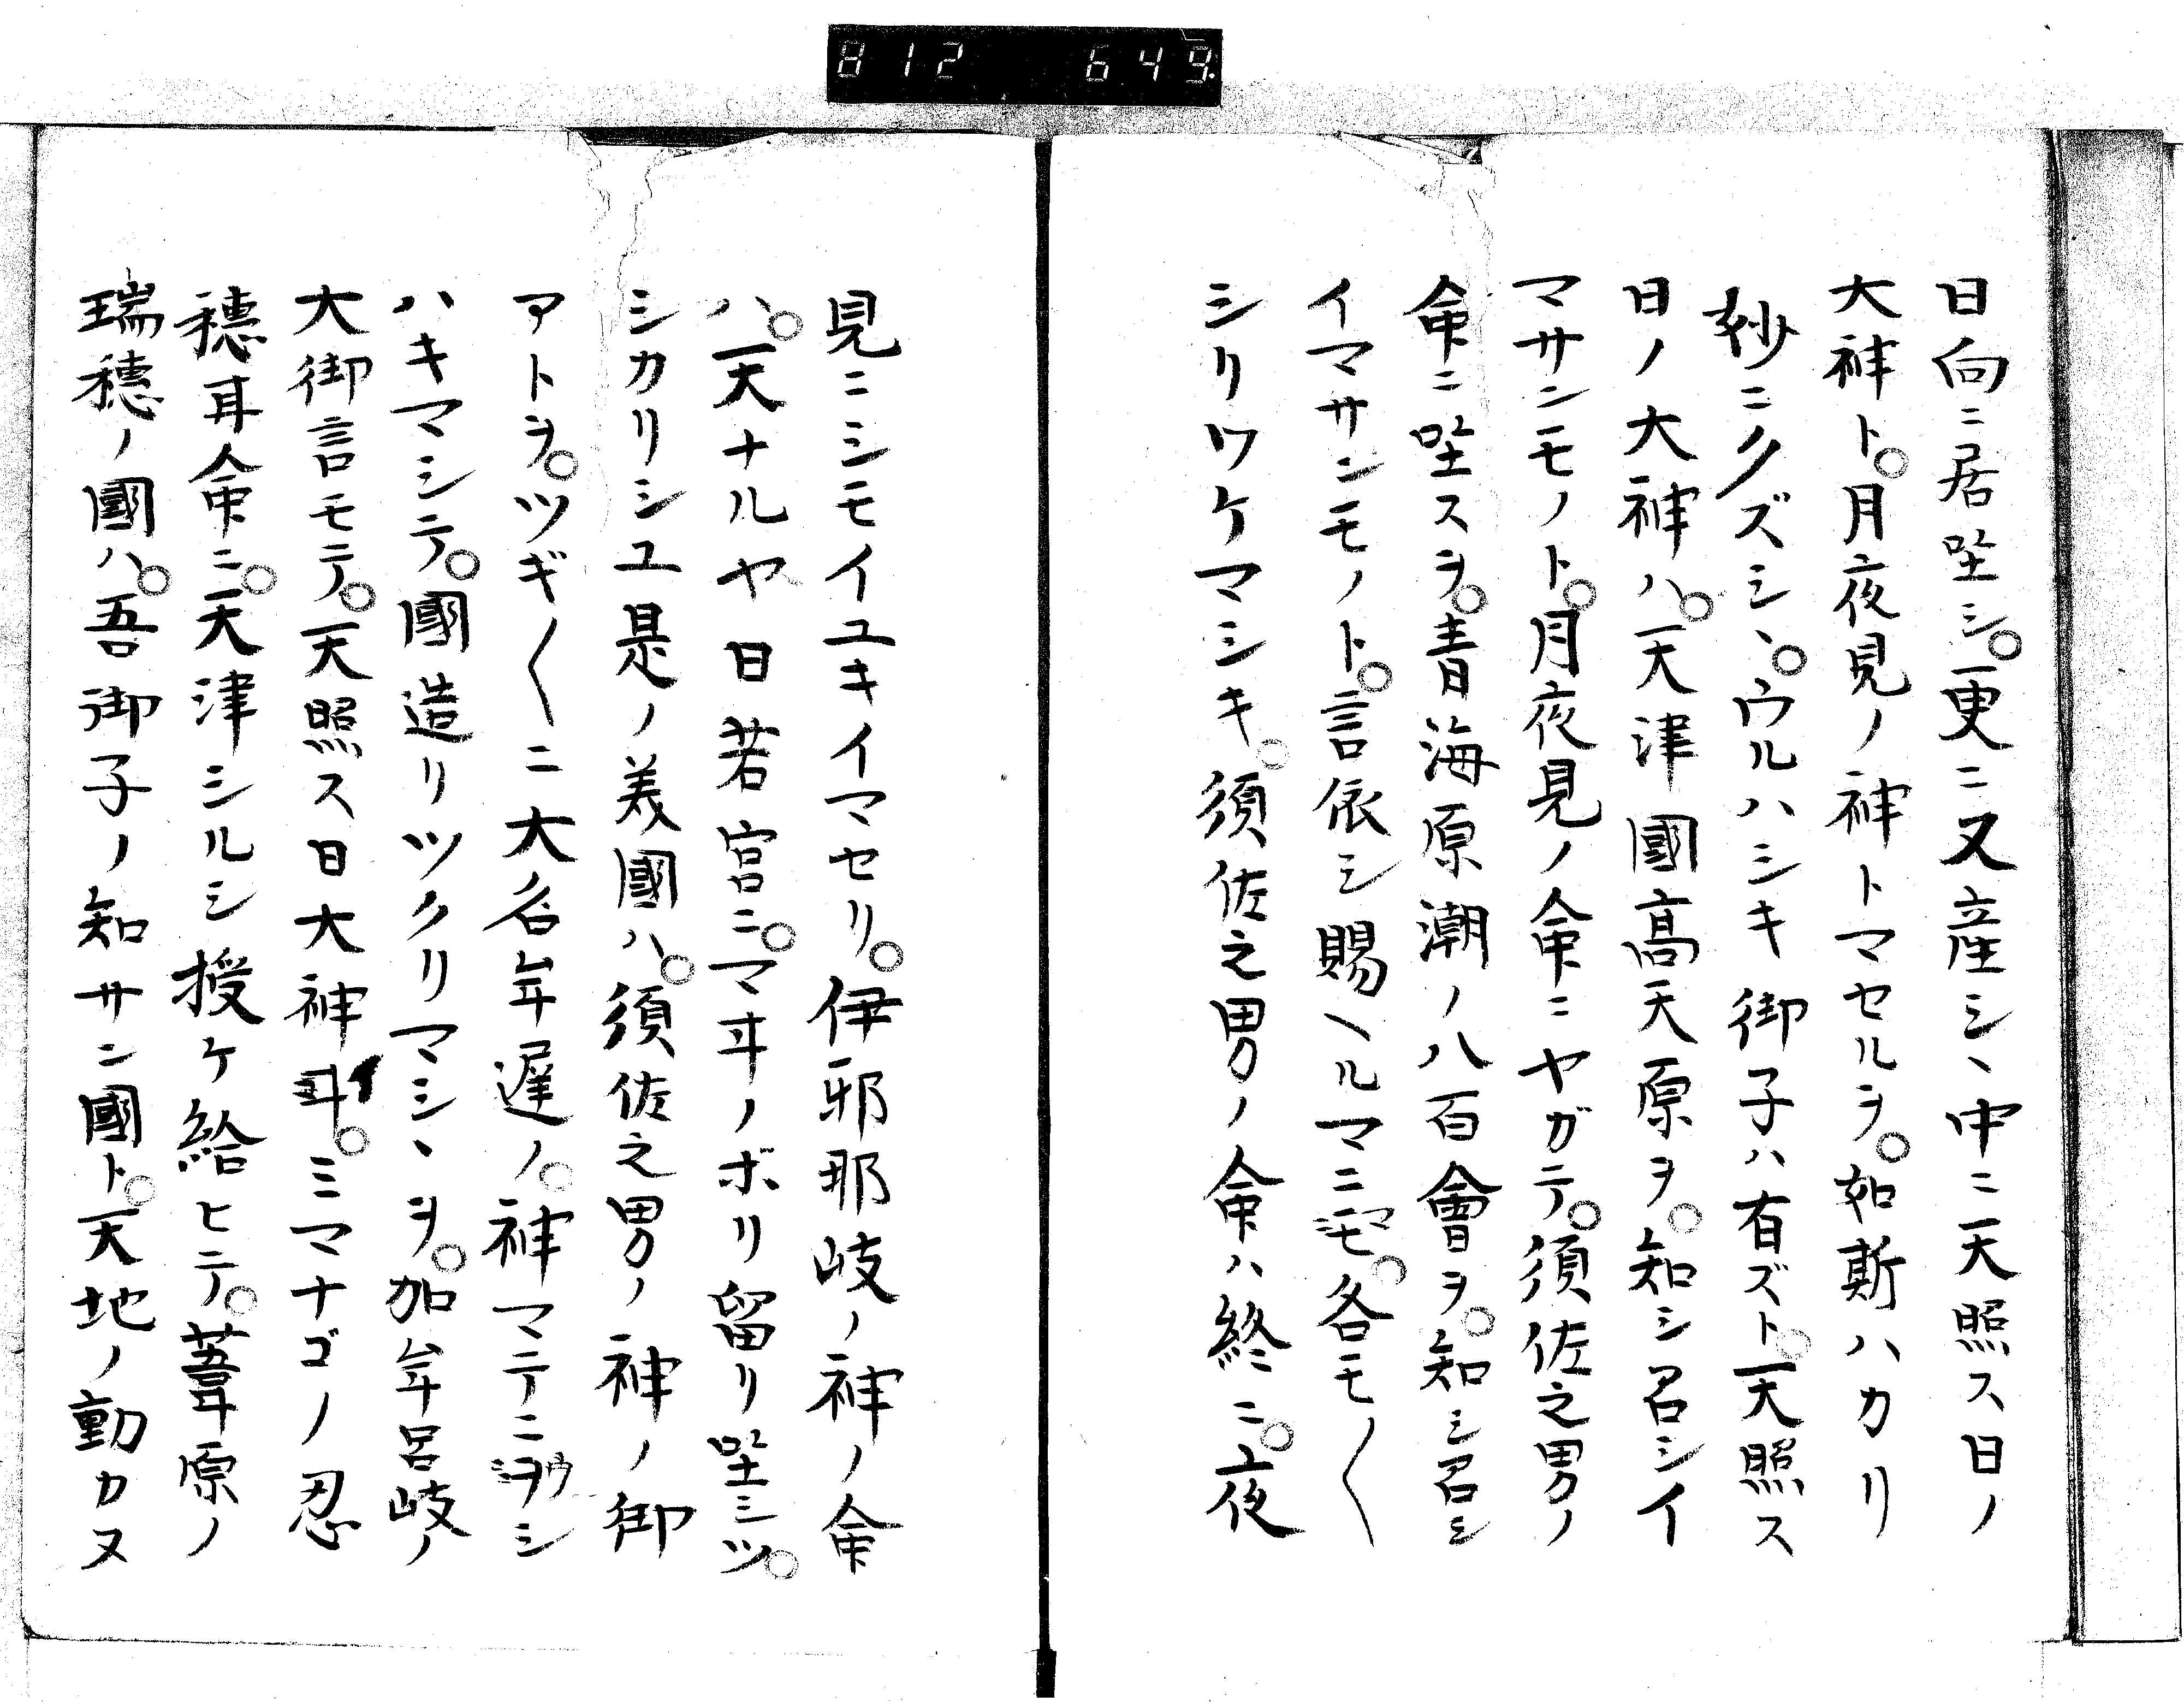 812 649
日向ニ居坐シ。更ニ又産シヽ中ニ天照ス日ノ
大神ト。月夜見ノ神トマセルヲ。如斯ハカリ
妙ニクズシヽ。ウルハシキ御子ハ有ズト。天照ス
日ノ大神ハ。天津國高天原ヲ。知シ召シイ
マサンモノト。月夜見ノ命ニヤガテ。須佐之男ノ
命ニ坐スヲ。青海原潮ノ八百會ヲ。知シ召シ
イマサンモノト。言依シ賜ヘルマニマニモ。各モ〱
シリワケマシキ。須佐之男ノ命ハ終ニ。夜
見ニシモイユキイマセリ。伊邪那岐ノ神ノ命
ハ。天ナルヤ日若宮ニ。マヰノボリ留リ坐ミツ。
シカリシユ是ノ美國ハ。須佐之男ノ神ノ御
アトヲ。ツギ〱ニ大名牟遅ノ。神マテニヲウシ
ハキマシテ。國造リツクリマシヽヲ。加牟呂岐ノ
大御言モテ。天照ス日大神ノ。ミマナゴノ忍
穂耳命ニ。天津シルシ授ケ給ヒテ。葦原ノ
瑞穂ノ國ハ。吾御子ノ知サン國ト。天地ノ動カヌ